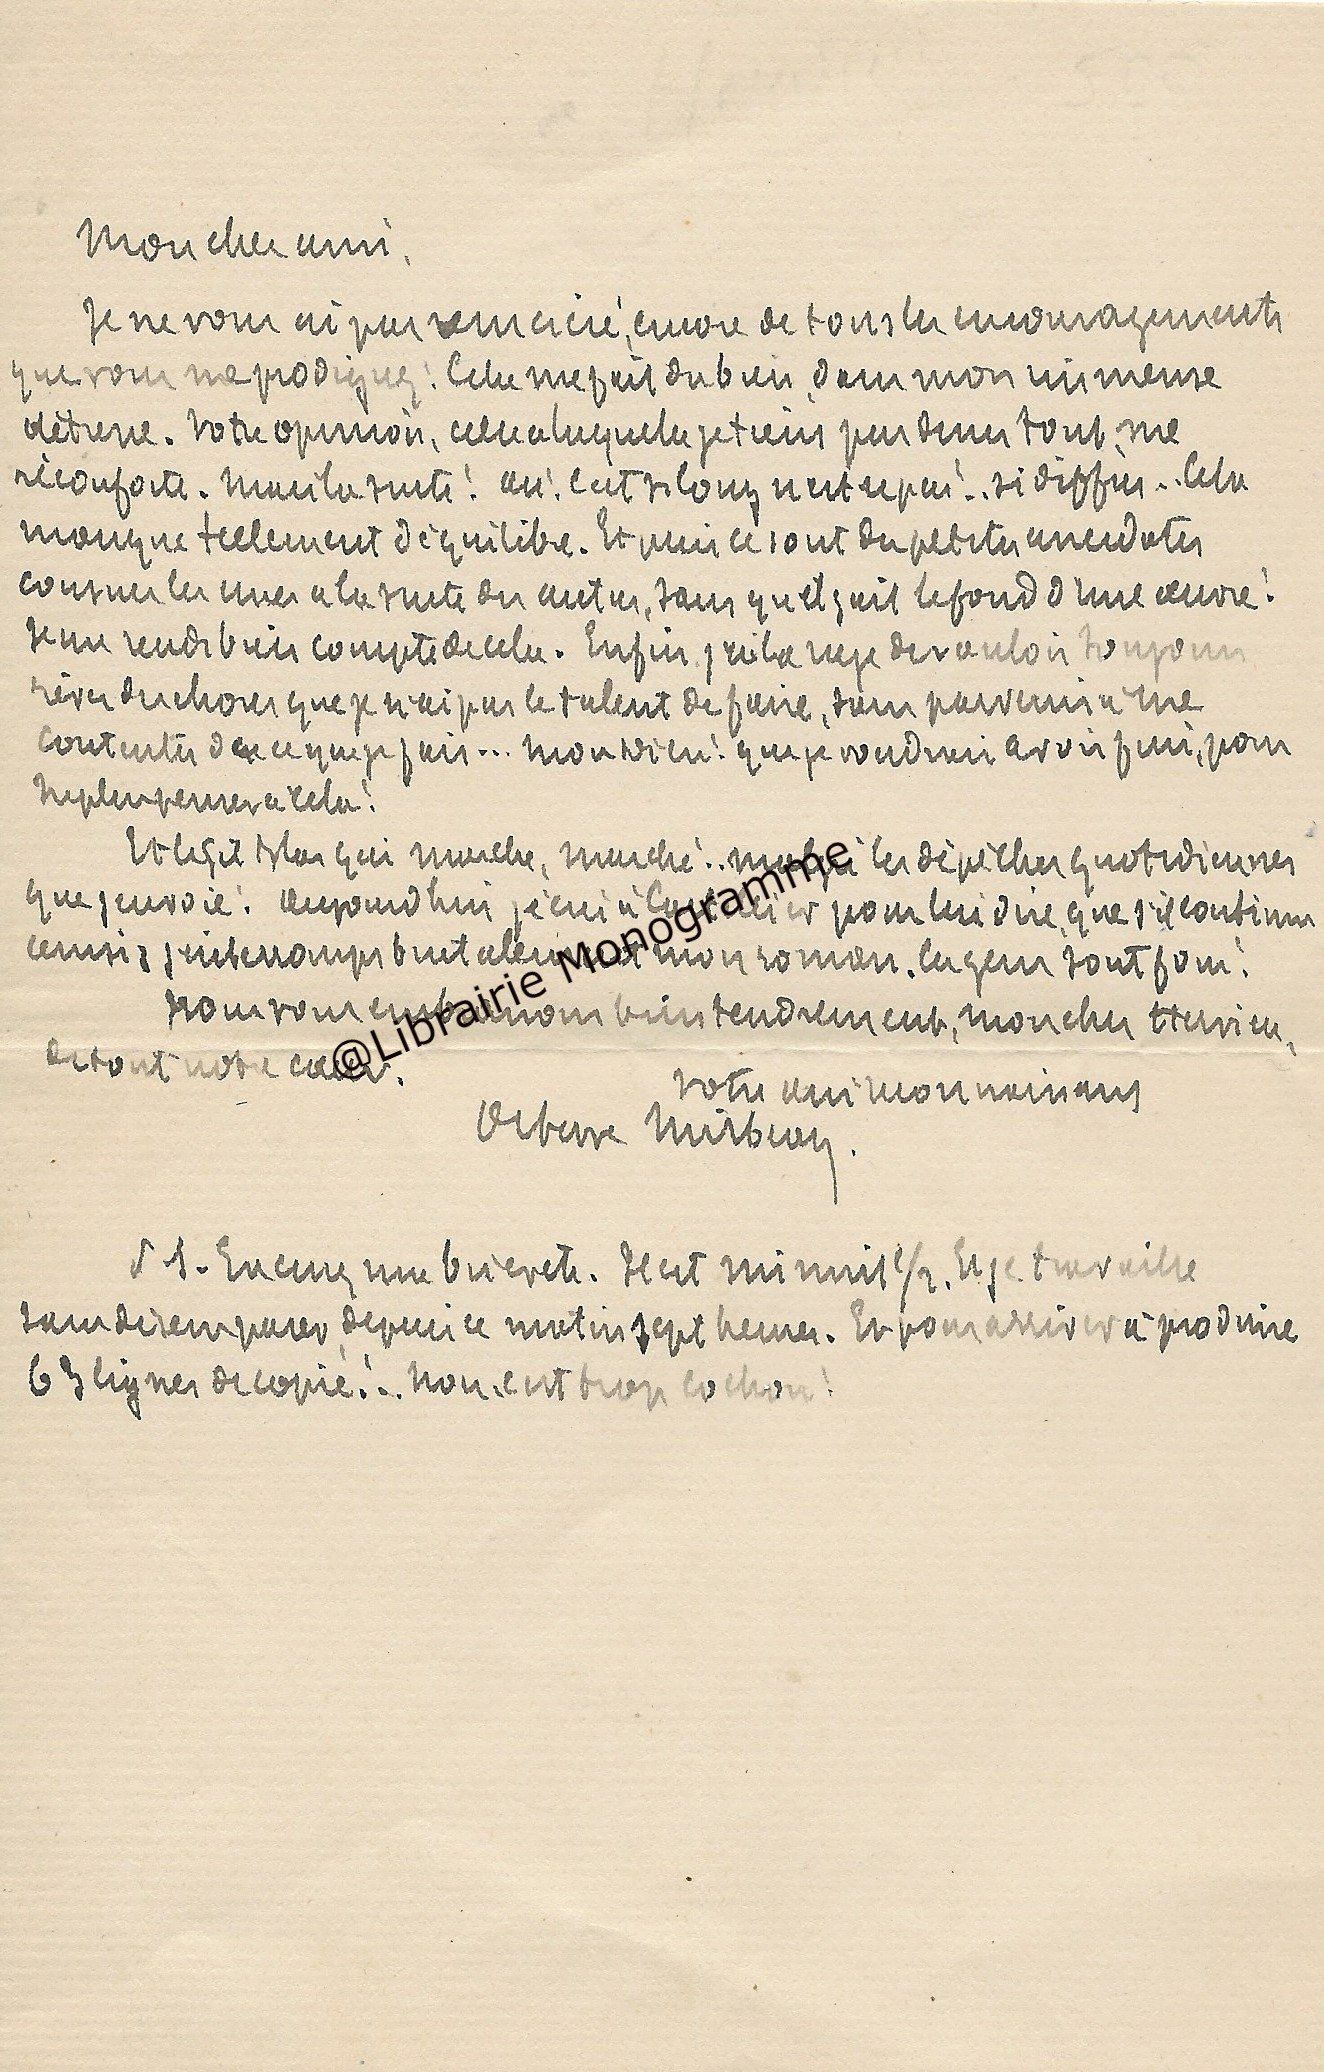 Mon cher ami,
Je ne vous ai pas remercié, encore de tous les encouragements
que vous me prodiguez ! Cela me fait du bien, dans mon immense
détresse. Votre opinion, celle à laquelle je tiens par dessus tout, me
réconforte. Mais la suite ! ah ! c'est si long n'est-ce pas !.. si diffus... Cela
manque tellement d'équilibre. Et puis ce sont des petites anecdotes
cousues les unes à la suite des autres, sans qu'il y ait le fond d'une œuvre !
Je me rends bien compte de cela. Enfin j'ai la rage de vouloir toujours
rêver des choses que je n'ai pas le talent de faire, sans parvenir à me
contenter de ce que je fais... Mon Dieu ! que je voudrais avoir fini, pour
ne plus penser à cela !
Et le Gil Blas qui marche, marche !.. malgré les dépêches quotidiennes
que j'envoie ! Aujourd'hui j'écris à pour lui dire, que s'il continue
ainsi, j'interromps brutalement mon roman. Ces gens sont fous !
Nous vous embrassons bien tendrement, mon cher Hervieu,
de tout notre cœur.
Votre ami reconnaissant
Octave Mirbeau.
P S. Excusez ma brièveté. Il est minuit 1/2. Et je travaille
sans désemparer, depuis ce matin sept heures. Et pour arriver à produire
63 lignes de copie !.. Non, c'est trop cochon !
@Librairie Monogramme